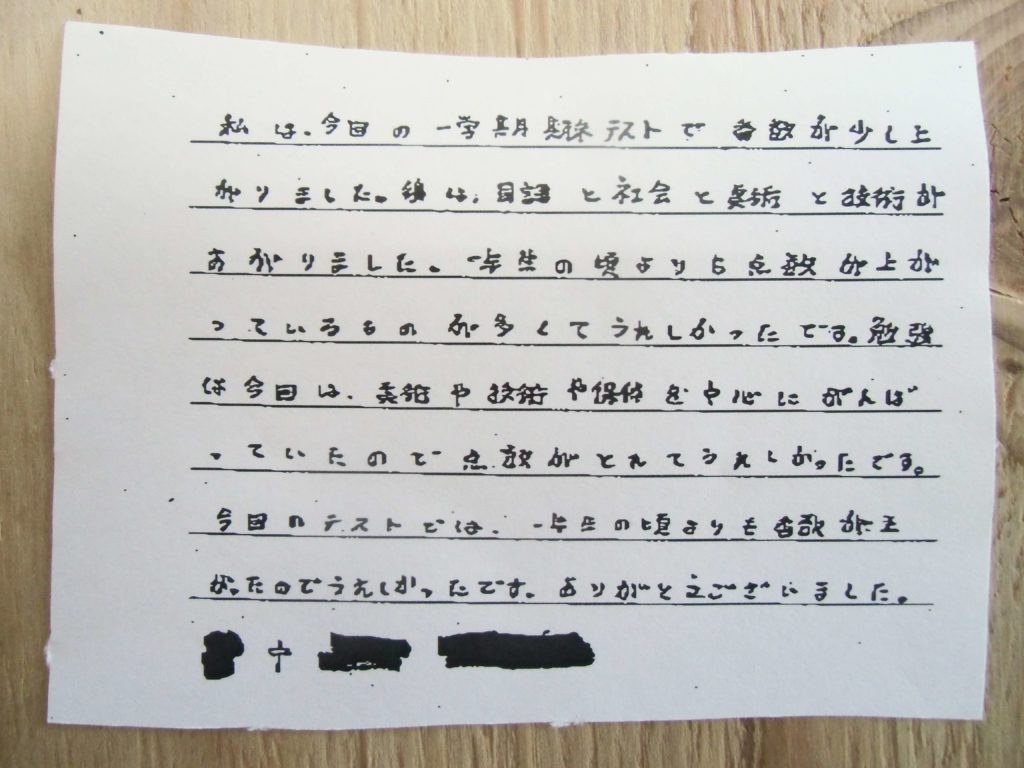 私は、今回の一学期期末テストで点数が少し上
がりました。私は、国語と社会と美術と技術が
あがりました。一年生の頃よりも点数が上が
っているものが多くてうれしかったです。勉強
は今回は、美術や技術や保体を中心にがんば
っていたので点数がとれてうれしかったです。
今回のテストでは、一年生の頃よりも点数が上
がったのでうれしかったです。ありがとうございました。
中